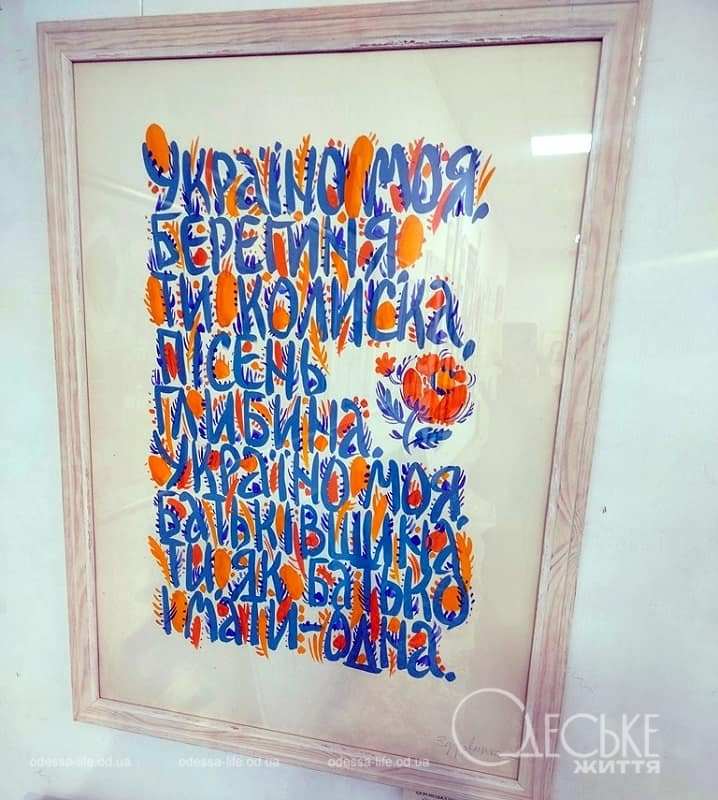 Україно моя.
Берегиня
ти колиска.
Пісень
глибина.
Україно моя.
Батьківщина.
Ти, як батько
і мати-одна.
ОДЕСЬКЕ
ЖИТТЯ
odessa-life.od.ua odessa-life.od.ua odessa-life.od.ua